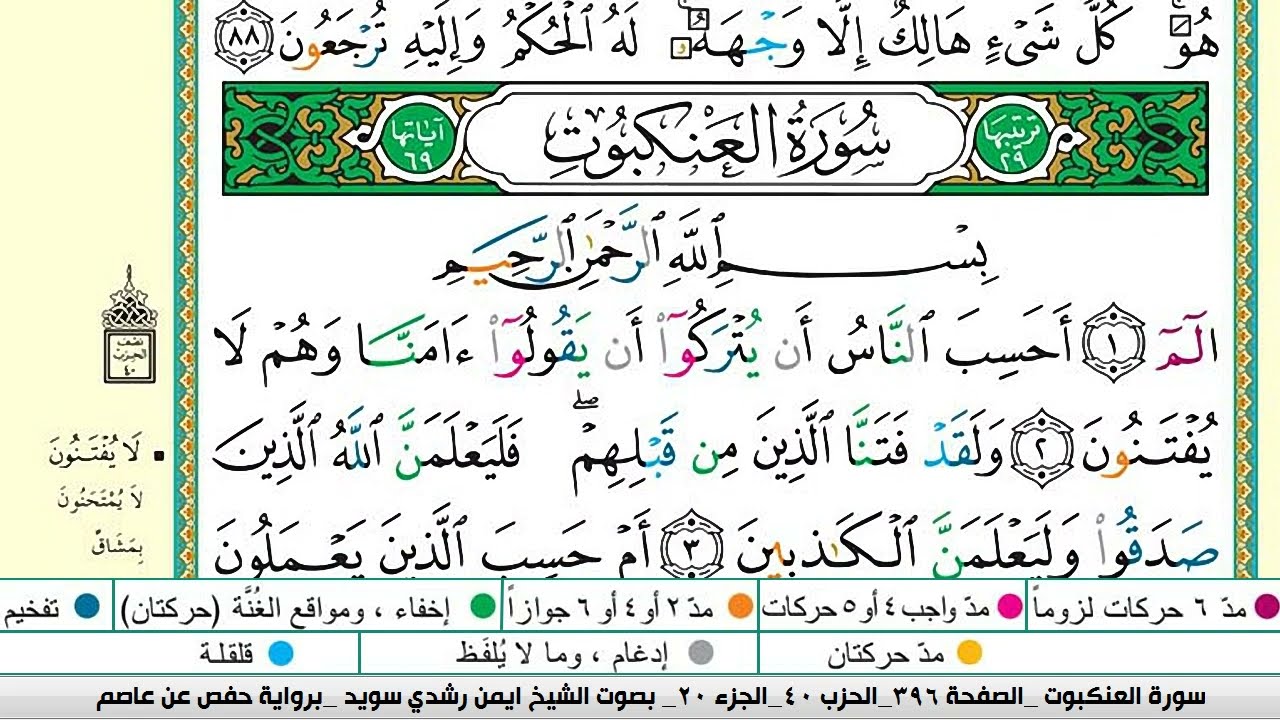 هُوَۚ كُلُّ شَىْءٍ هَالِكٌ إِلَّا وَجْهَهُۥۚ لَهُ ٱلْحُكْمُ وَإِلَيْهِ تُرْجَعُونَ ٨٨
ترتيبها ٢٩ سُورَةُ العَنْكَبُوتِ آياتها ٦٩
بِسْمِ ٱللَّهِ ٱلرَّحْمَٰنِ ٱلرَّحِيمِ
الٓمٓ ١ أَحَسِبَ ٱلنَّاسُ أَن يُتْرَكُوٓا۟ أَن يَقُولُوٓا۟ ءَامَنَّا وَهُمْ لَا
يُفْتَنُونَ ٢ وَلَقَدْ فَتَنَّا ٱلَّذِينَ مِن قَبْلِهِمْۖ فَلَيَعْلَمَنَّ ٱللَّهُ ٱلَّذِينَ
صَدَقُوا۟ وَلَيَعْلَمَنَّ ٱلْكَٰذِبِينَ ٣ أَمْ حَسِبَ ٱلَّذِينَ يَعْمَلُونَ
نصف
الحزب
٤٠
لَا يُفْتَنُونَ
لَا يُمْتَحَنُونَ
بِمَشَاقِّ
مدّ ٦ حركات لزوماً مدّ واجب ٤ أو ٥ حركات مدّ ٢ أو ٤ أو ٦ جوازاً إخفاء ، ومواقع الغُنَّة (حركتان) تفخيم
مدّ حركتان إدغام ، وما لا يُلفَظ قلقلة
سورة العنكبوت _الصفحة ٣٩٦_الحزب ٤٠_الجزء ٢٠_ بصوت الشيخ ايمن رشدي سويد _برواية حفص عن عاصم